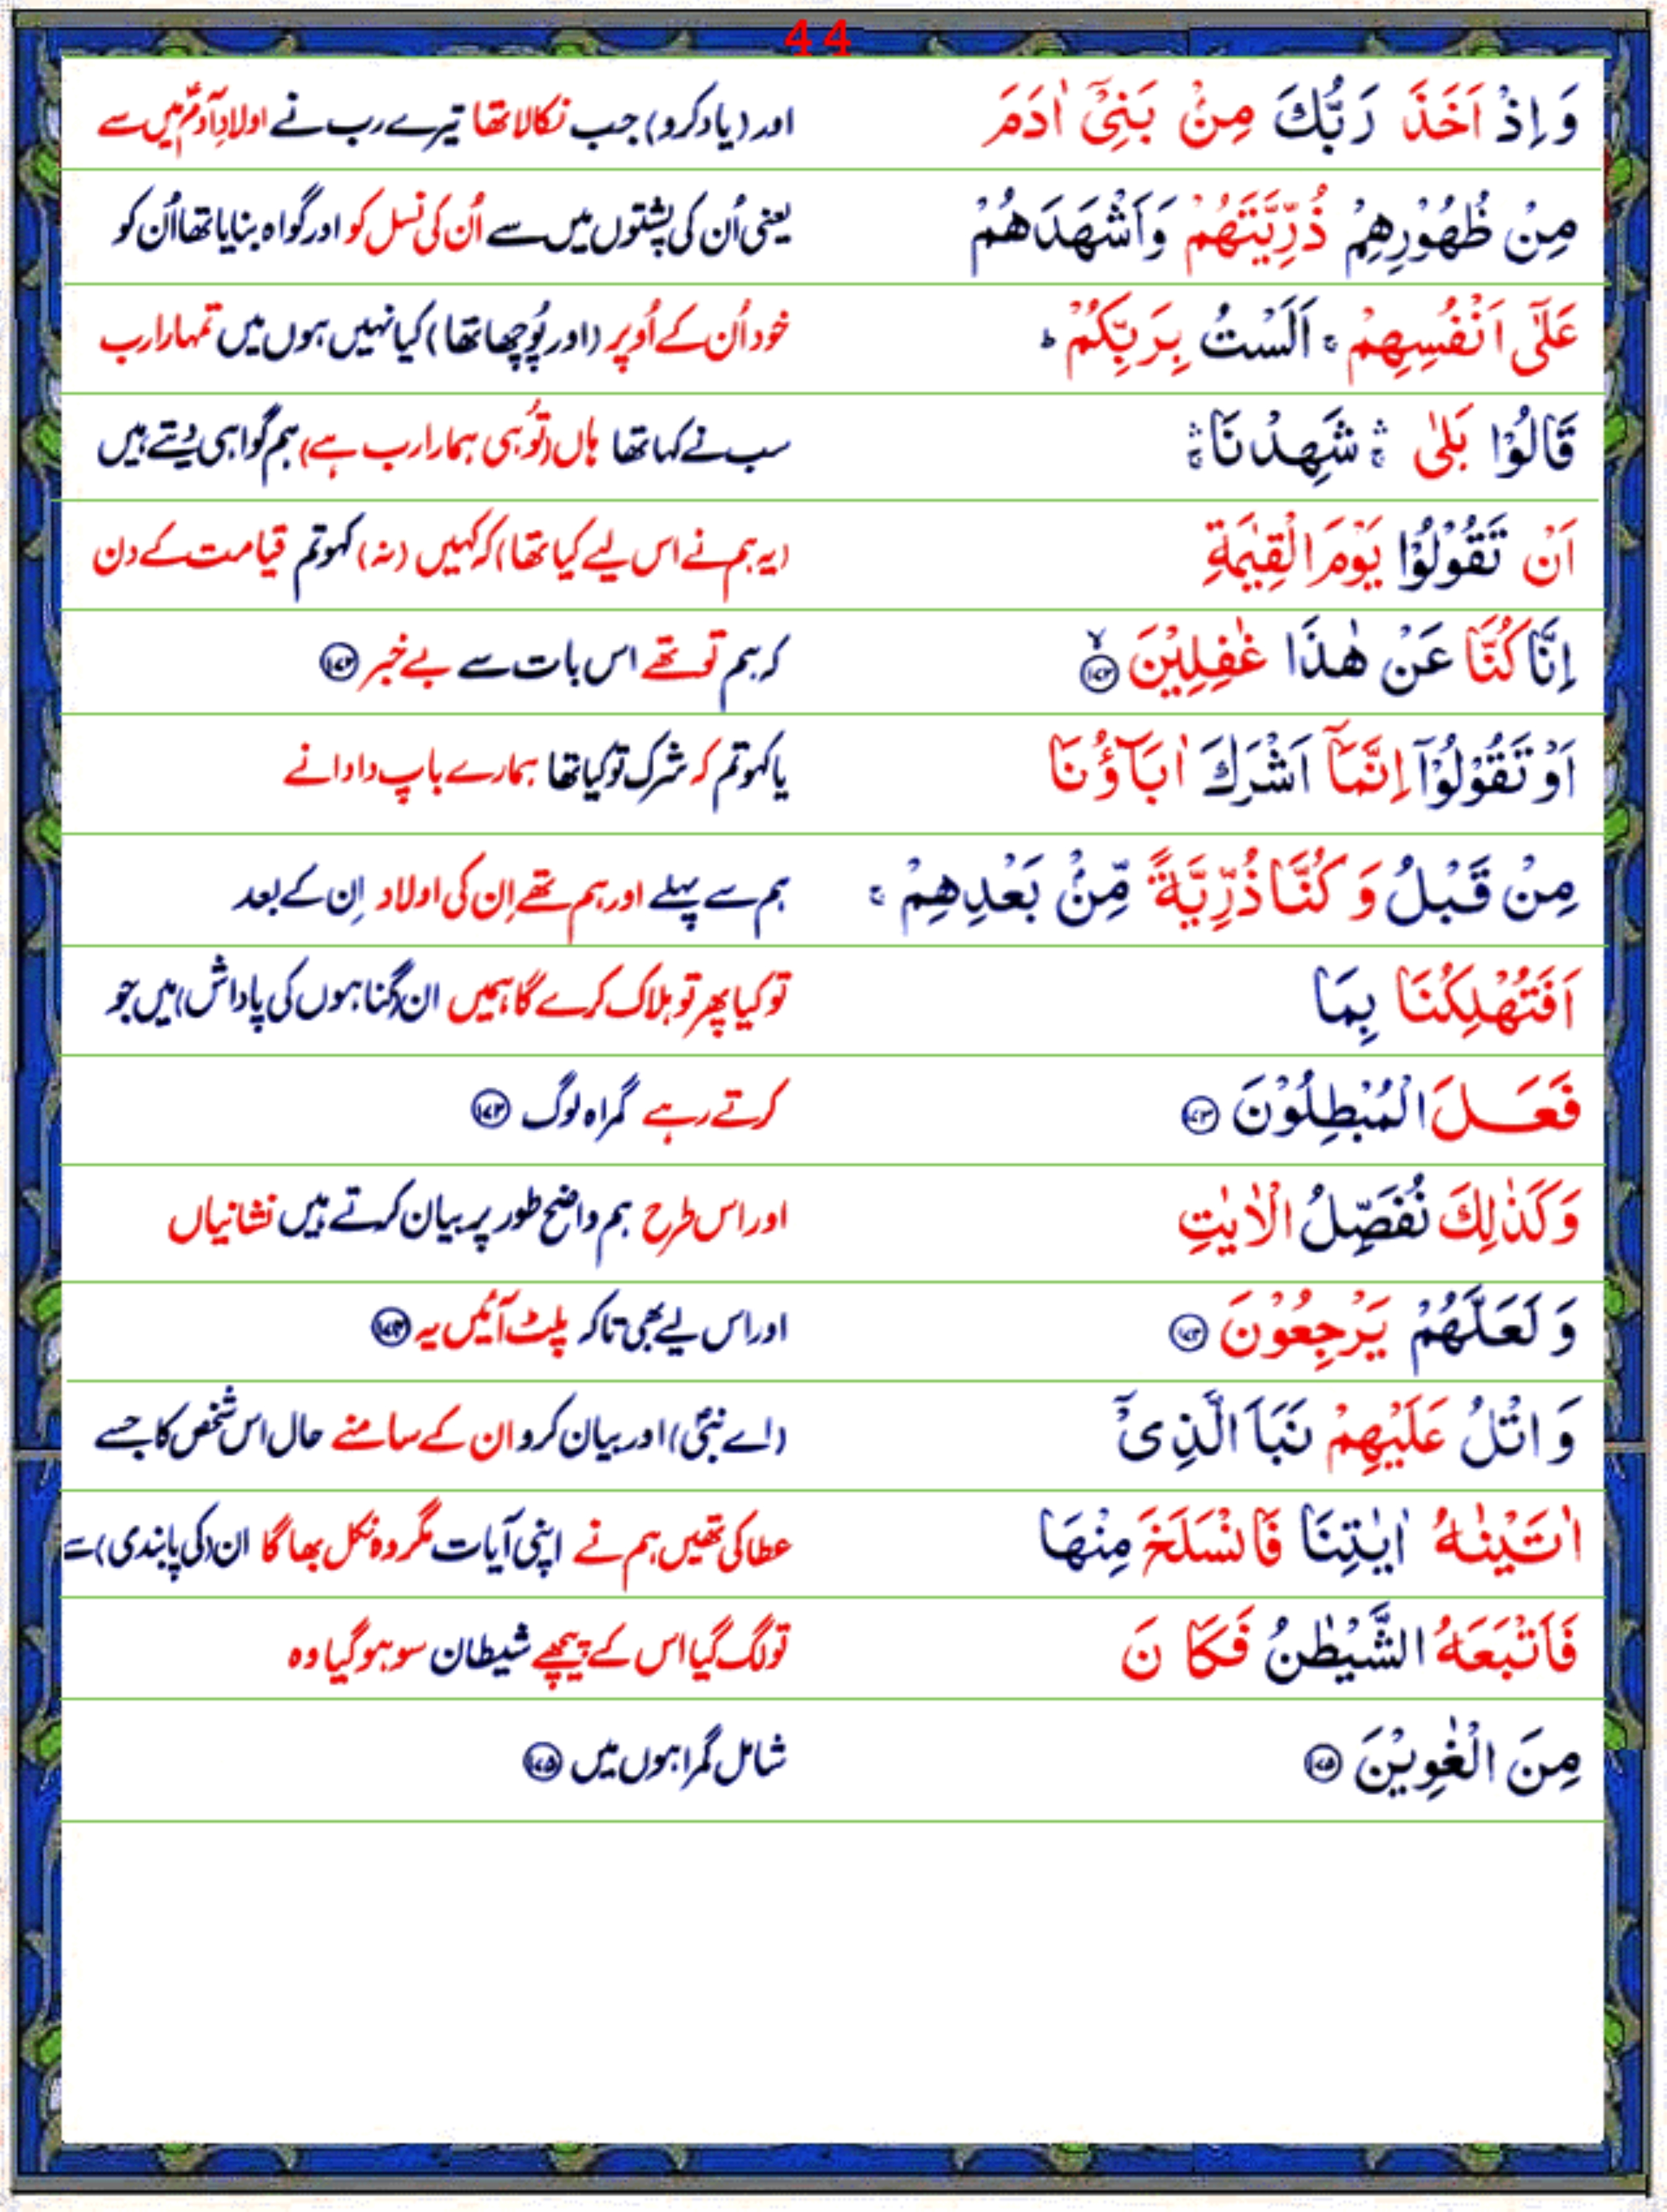 44
وَاِذْ اَخَذَ رَبُّكَ مِنْۢ بَنِىْۤ اٰدَمَ اور (یاد کرو) جب نکالا تھا تیرے رب نے اولادِ آدمؑ میں سے
مِنْ ظُهُوْرِهِمْ ذُرِّيَّتَهُمْ وَاَشْهَدَهُمْ یعنی اُن کی پشتوں میں سے اُن کی نسل کو اور گواہ بنایا تھا اُن کو
عَلٰٓى اَنْفُسِهِمْ‌ ۚ اَلَسْتُ بِرَبِّكُمْ‌ ؕ خود اُن کے اُوپر (اور پُوچھا تھا) کیا نہیں ہوں میں تمہارا رب
قَالُوْا بَلٰى‌ ۛۚ شَهِدْنَا ‌ۛۚ سب نے کہا تھا ہاں (تُو ہی ہمارا رب ہے) ہم گواہی دیتے ہیں
اَنْ تَقُوْلُوْا يَوْمَ الْقِيٰمَةِ (یہ ہم نے اس لیے کیا تھا) کہ کہیں (نہ) کہو تم قیامت کے دن
اِنَّا كُنَّا عَنْ هٰذَا غٰفِلِيْنَ ۙ‏ ﴿۱۷۲﴾ کہ ہم تو تھے اس بات سے بے خبر ﴿۱۷۲﴾
اَوْ تَقُوْلُوْۤا اِنَّمَاۤ اَشْرَكَ اٰبَآؤُنَا یا کہو تم کہ شرک تو کیا تھا ہمارے باپ دادا نے
مِنْ قَبْلُ وَكُنَّا ذُرِّيَّةً مِّنْۢ بَعْدِهِمْ‌ ۚ ہم سے پہلے اور ہم تھے اِن کی اولاد اِن کے بعد
اَفَتُهْلِكُنَا بِمَا تو کیا پھر تو ہلاک کرے گا ہمیں ان (گناہوں کی پاداش) میں جو
فَعَلَ الْمُبْطِلُوْنَ‏ ﴿۱۷۳﴾ کرتے رہے گمراہ لوگ ﴿۱۷۳﴾
وَكَذٰلِكَ نُفَصِّلُ الْاٰيٰتِ اور اس طرح ہم واضح طور پر بیان کرتے ہیں نشانیاں
وَلَعَلَّهُمْ يَرْجِعُوْنَ‏ ﴿۱۷۴﴾ اور اس لیے بھی تاکہ پلٹ آئیں یہ ﴿۱۷۴﴾
وَاتْلُ عَلَيْهِمْ نَبَاَ الَّذِىْۤ (اے نبیؐ) اور بیان کرو ان کے سامنے حال اس شخص کا جسے
اٰتَيْنٰهُ اٰيٰتِنَا فَانْسَلَخَ مِنْهَا عطا کی تھیں ہم نے اپنی آیات مگر وہ نکل بھاگا ان (کی پابندی) سے
فَاَتْبَعَهُ الشَّيْطٰنُ فَكَانَ تو لگ گیا اس کے پیچھے شیطان سو ہو گیا وہ
مِنَ الْغٰوِيْنَ‏ ﴿۱۷۵﴾ شامل گمراہوں میں ﴿۱۷۵﴾